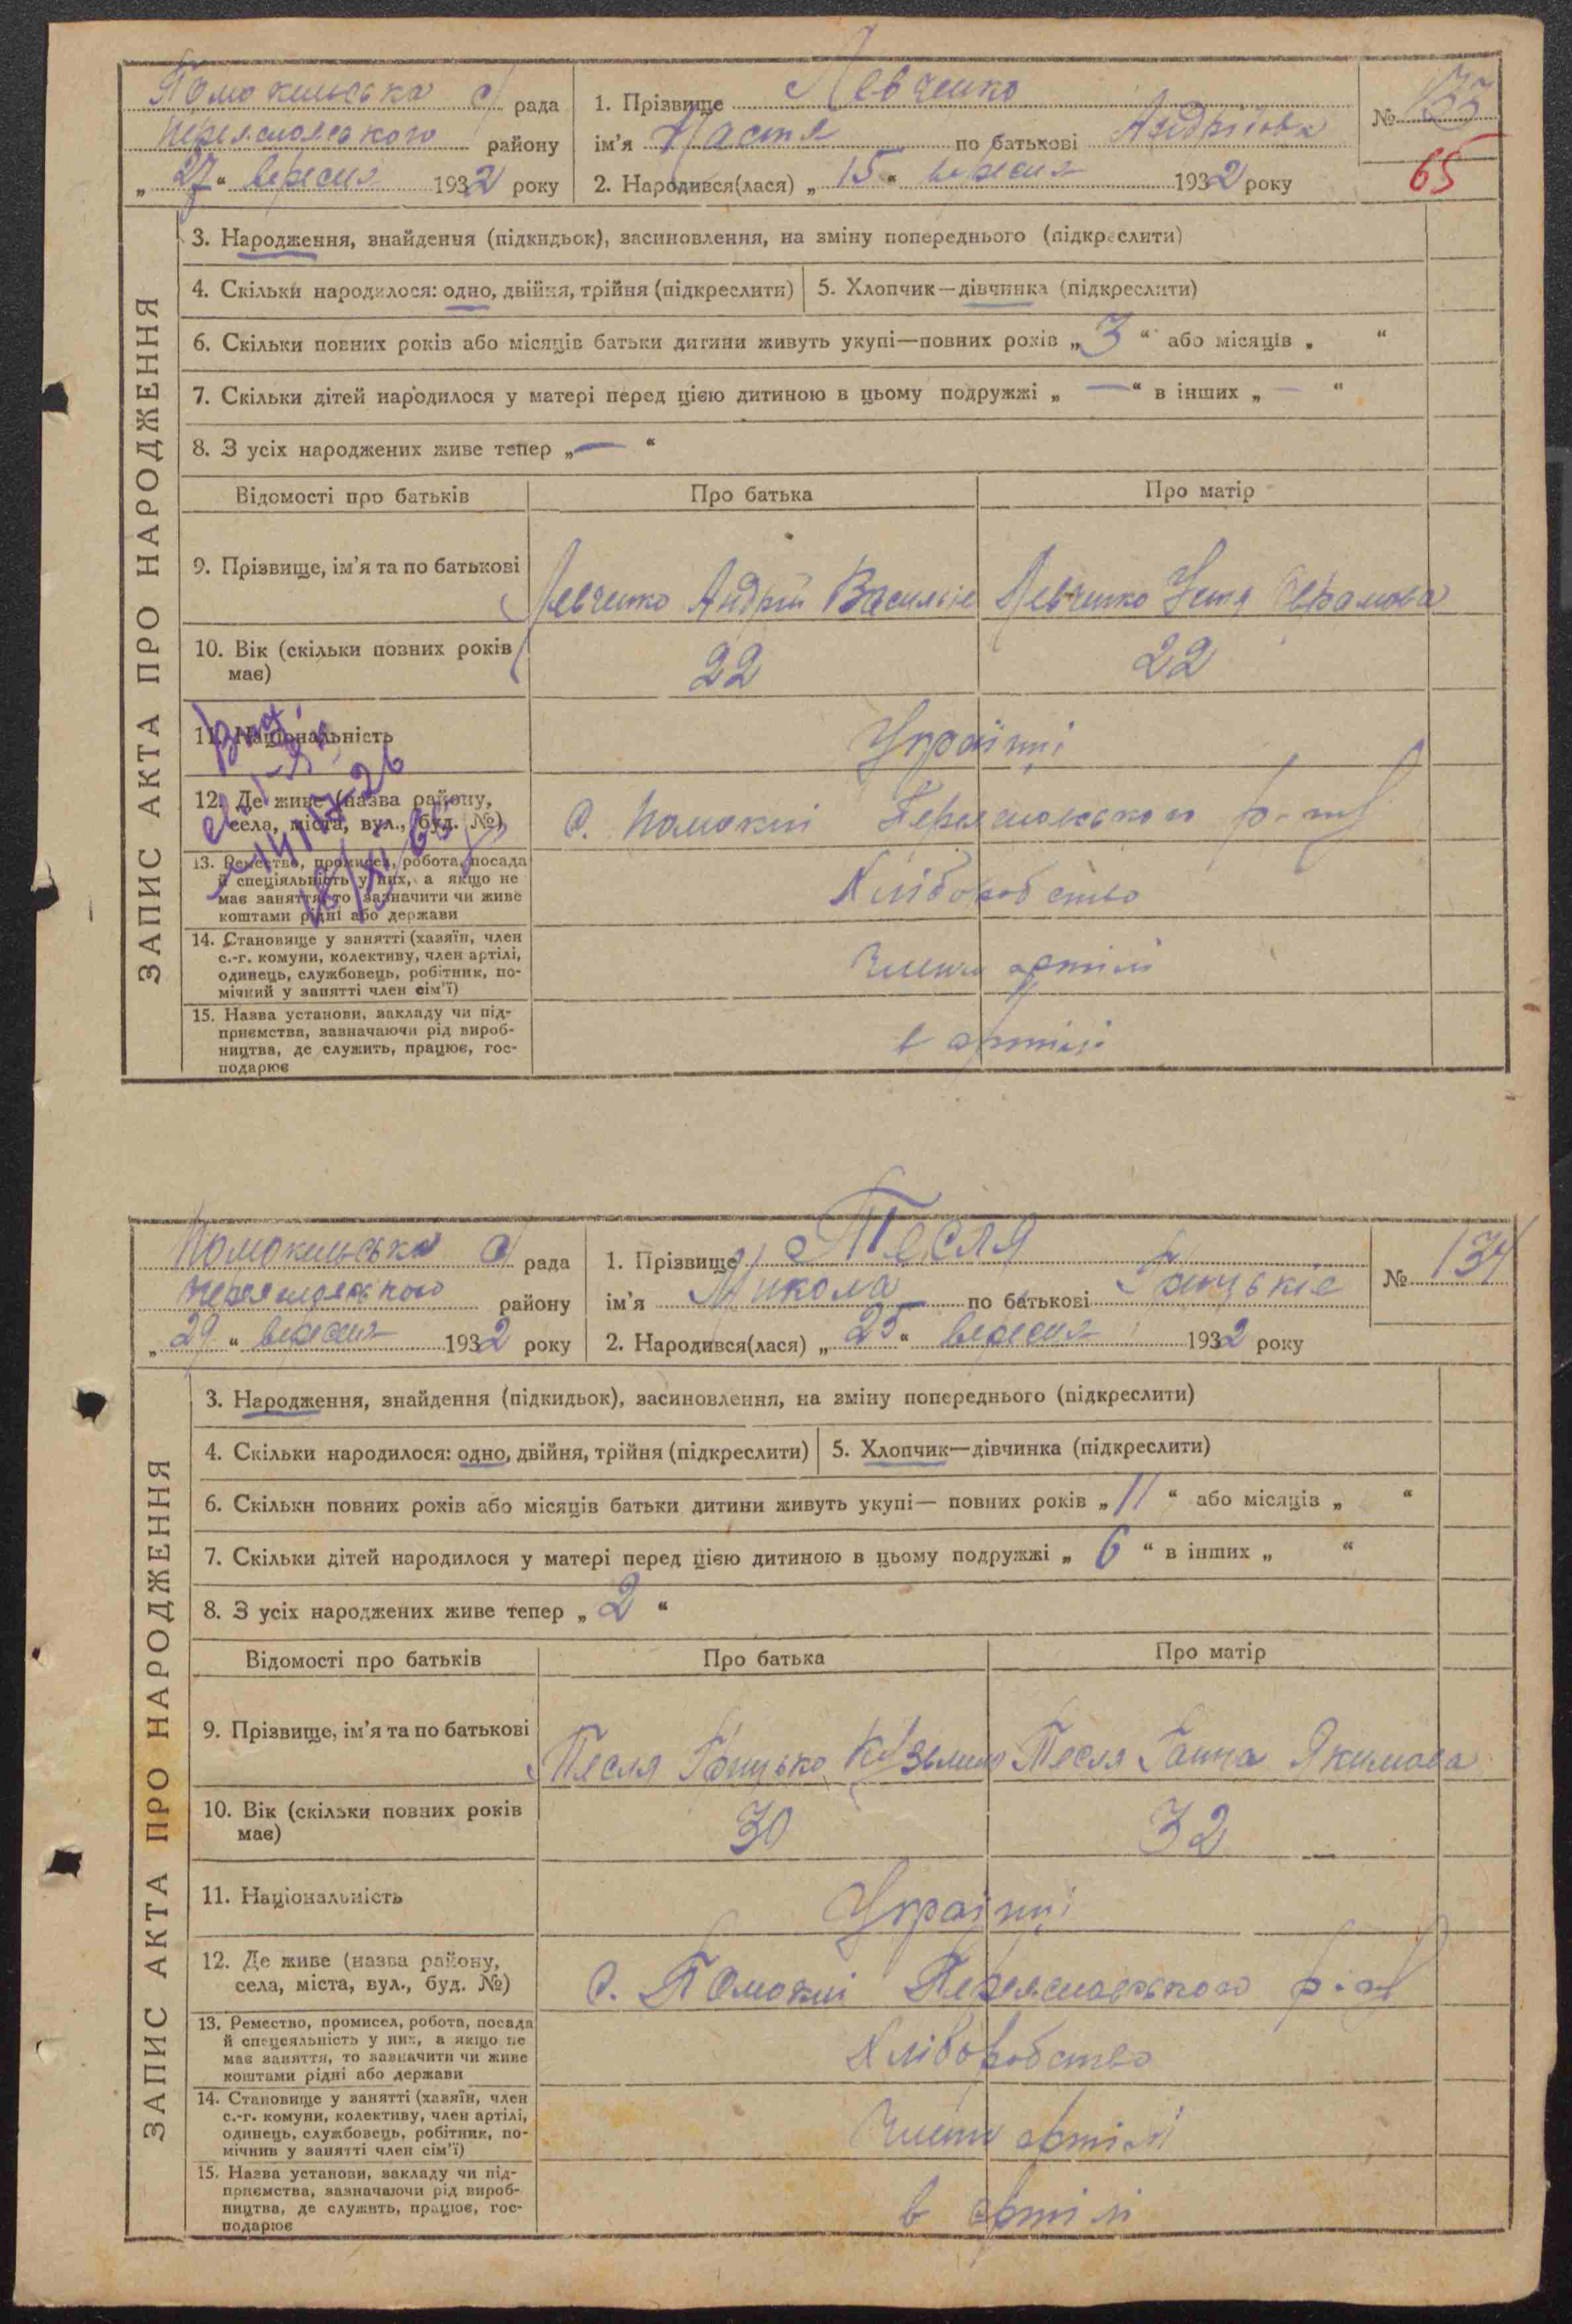 Помокельська с/ рада
Переяславського району
„27“ вересня 1932 року
1. Прізвище Левченко
ім'я Настя по батькові Андріївна
2. Народився(лася) „15“ вересня 1932 року
№ 133
65
ЗАПИС АКТА ПРО НАРОДЖЕННЯ
3. Народження, знайдення (підкидьок), засиновлення, на зміну попереднього (підкреслити)
4. Скільки народилося: одно, двійня, трійня (підкреслити)
5. Хлопчик—дівчинка (підкреслити)
6. Скільки повних років або місяців батьки дитини живуть укупі—повних років „3“ або місяців „ “
7. Скільки дітей народилося у матері перед цією дитиною в цьому подружжі „—“ в інших „—“
8. З усіх народжених живе тепер „—“
Відомості про батьків
Про батька
Про матір
9. Прізвище, ім'я та по батькові
Левченко Андрій Васильів
Левченко
10. Вік (скільки повних років
має)
22
22
11. Національність
Українці
12. Де живе (назва району,
села, міста, вул., буд. №)
с. Помоклі Переяславського р-ну
13. Ремество, промисел, робота, посада
й спеціяльність у них, а якщо не
має заняття, то зазначити чи живе
коштами рідні або держави
Хліборобство
14. Становище у занятті (хазяїн, член
с.-г. комуни, колективу, член артілі,
одинець, службовець, робітник, по-
мічний у занятті член сім'ї)
Члени артілі
15. Назва установи, закладу чи під-
приємства, зазначаючи рід вироб-
ництва, де служить, працює, гос-
подарює
в артілі
Помокельська с/ рада
Переяславського району
„29“ вересня 1932 року
1. Прізвище Тесля
ім'я Микола по батькові Грицьків
2. Народився(лася) „25“ вересня 1932 року
№ 134
ЗАПИС АКТА ПРО НАРОДЖЕННЯ
3. Народження, знайдення (підкидьок), засиновлення, на зміну попереднього (підкреслити)
4. Скільки народилося: одно, двійня, трійня (підкреслити)
5. Хлопчик—дівчинка (підкреслити)
6. Скільки повних років або місяців батьки дитини живуть укупі— повних років „11“ або місяців „ “
7. Скільки дітей народилося у матері перед цією дитиною в цьому подружжі „6“ в інших „ “
8. З усіх народжених живе тепер „2“
Відомості про батьків
Про батька
Про матір
9. Прізвище, ім'я та по батькові
Тесля Грицько Кузьмин
Тесля Ганна Якимова
10. Вік (скільки повних років
має)
30
32
11. Національність
Українці
12. Де живе (назва району,
села, міста, вул., буд. №)
с. Помоклі Переяславського р-ну
13. Ремество, промисел, робота, посада
й спецеяльність у них, а якщо не
має заняття, то зазначити чи живе
коштами рідні або держави
Хліборобство
14. Становище у занятті (хазяїн, член
с.-г. комуни, колективу, член артілі,
одинець, службовець, робітник, по-
мічнив у занятті член сім'ї)
Члени артілі
15. Назва установи, закладу чи під-
приємства, зазначаючи рід вироб-
ництва, де служить, працює, гос-
подарює
в артілі